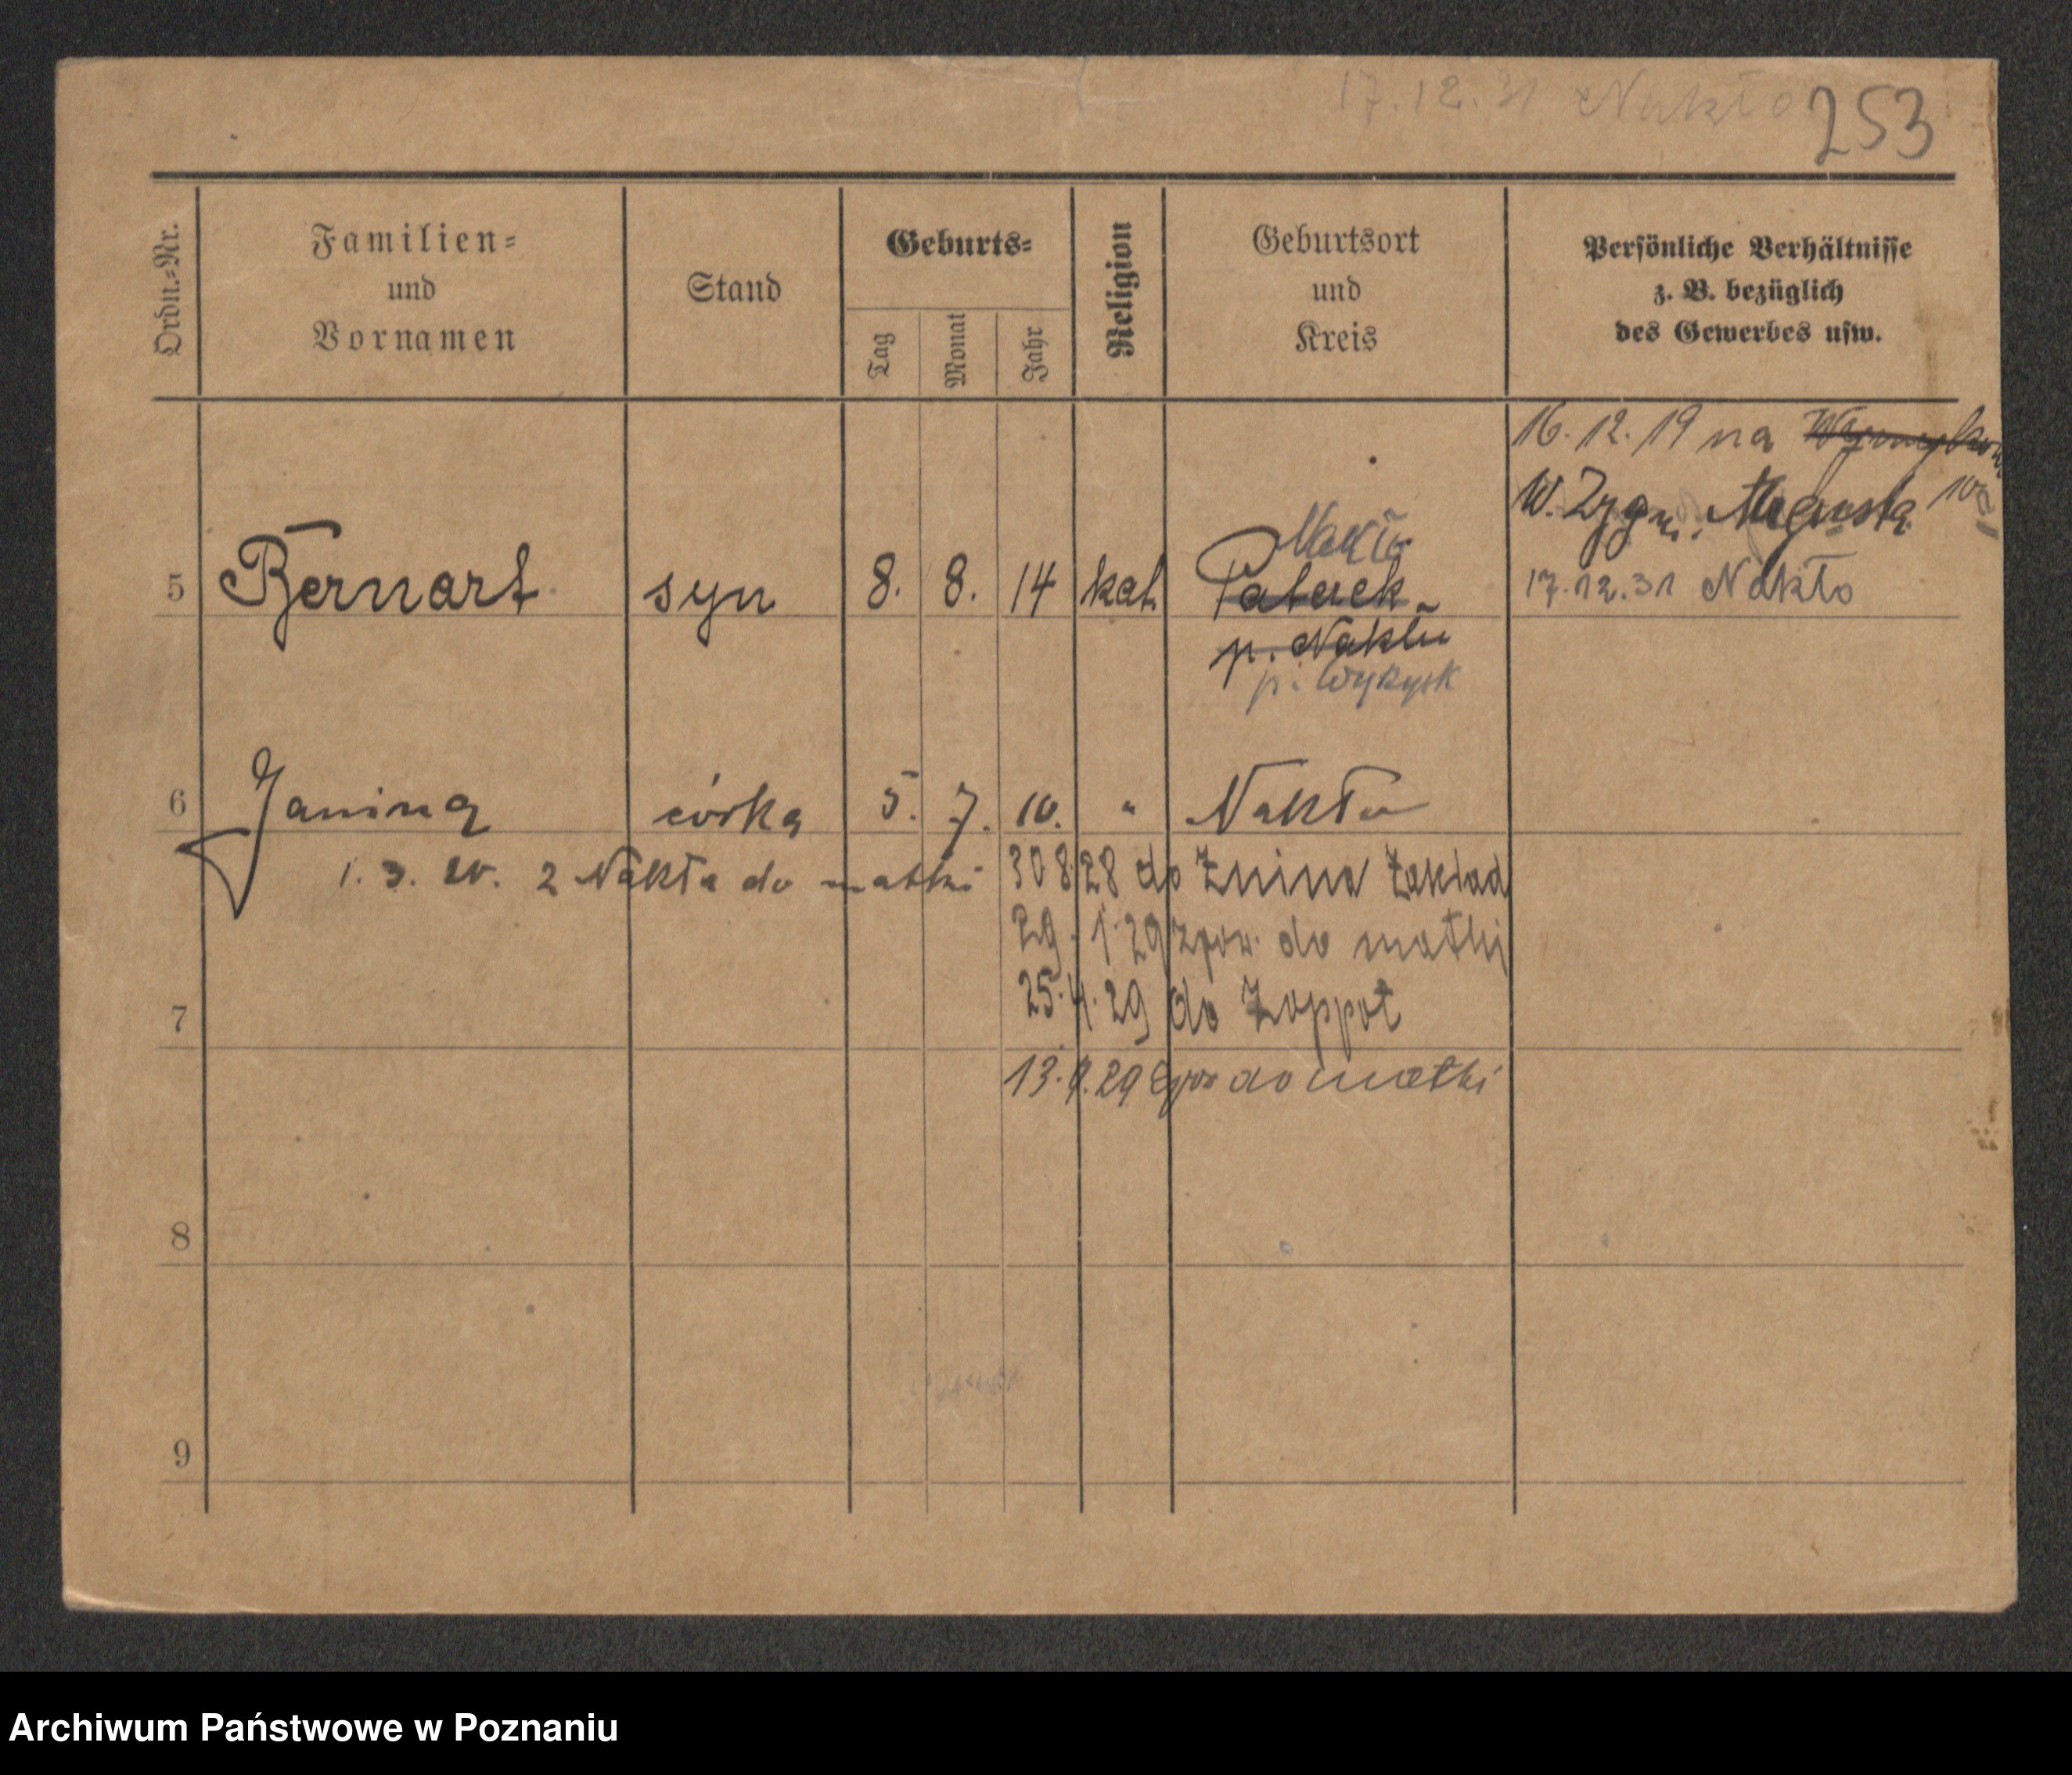 17.12.31 Nakło 253
Ordn.-Nr.
Familien-
und
Vornamen
Stand
Geburts-
Tag
Monat
Jahr
Religion
Geburtsort
und
Kreis
Persönliche Verhältnisse
z. B. bezüglich
des Gewerbes usw.
16. 12. 19 na
W. Zygm. Augusta
Nakło
5 Bernart syn 8. 8. 14 kat. Paterek 17.12.31 Nakło
p. Nakłu
p. Wyrzysk
6 Janina córka 5. 7. 10. " Nakło
1. 3. 20. z Nakła do matki 30 8 28 do Żnina Zakład
29. 1. 29 zpow. do matki
25. 4. 29 do Zoppot
7
13. 9. 29 do matki
8
9
Archiwum Państwowe w Poznaniu